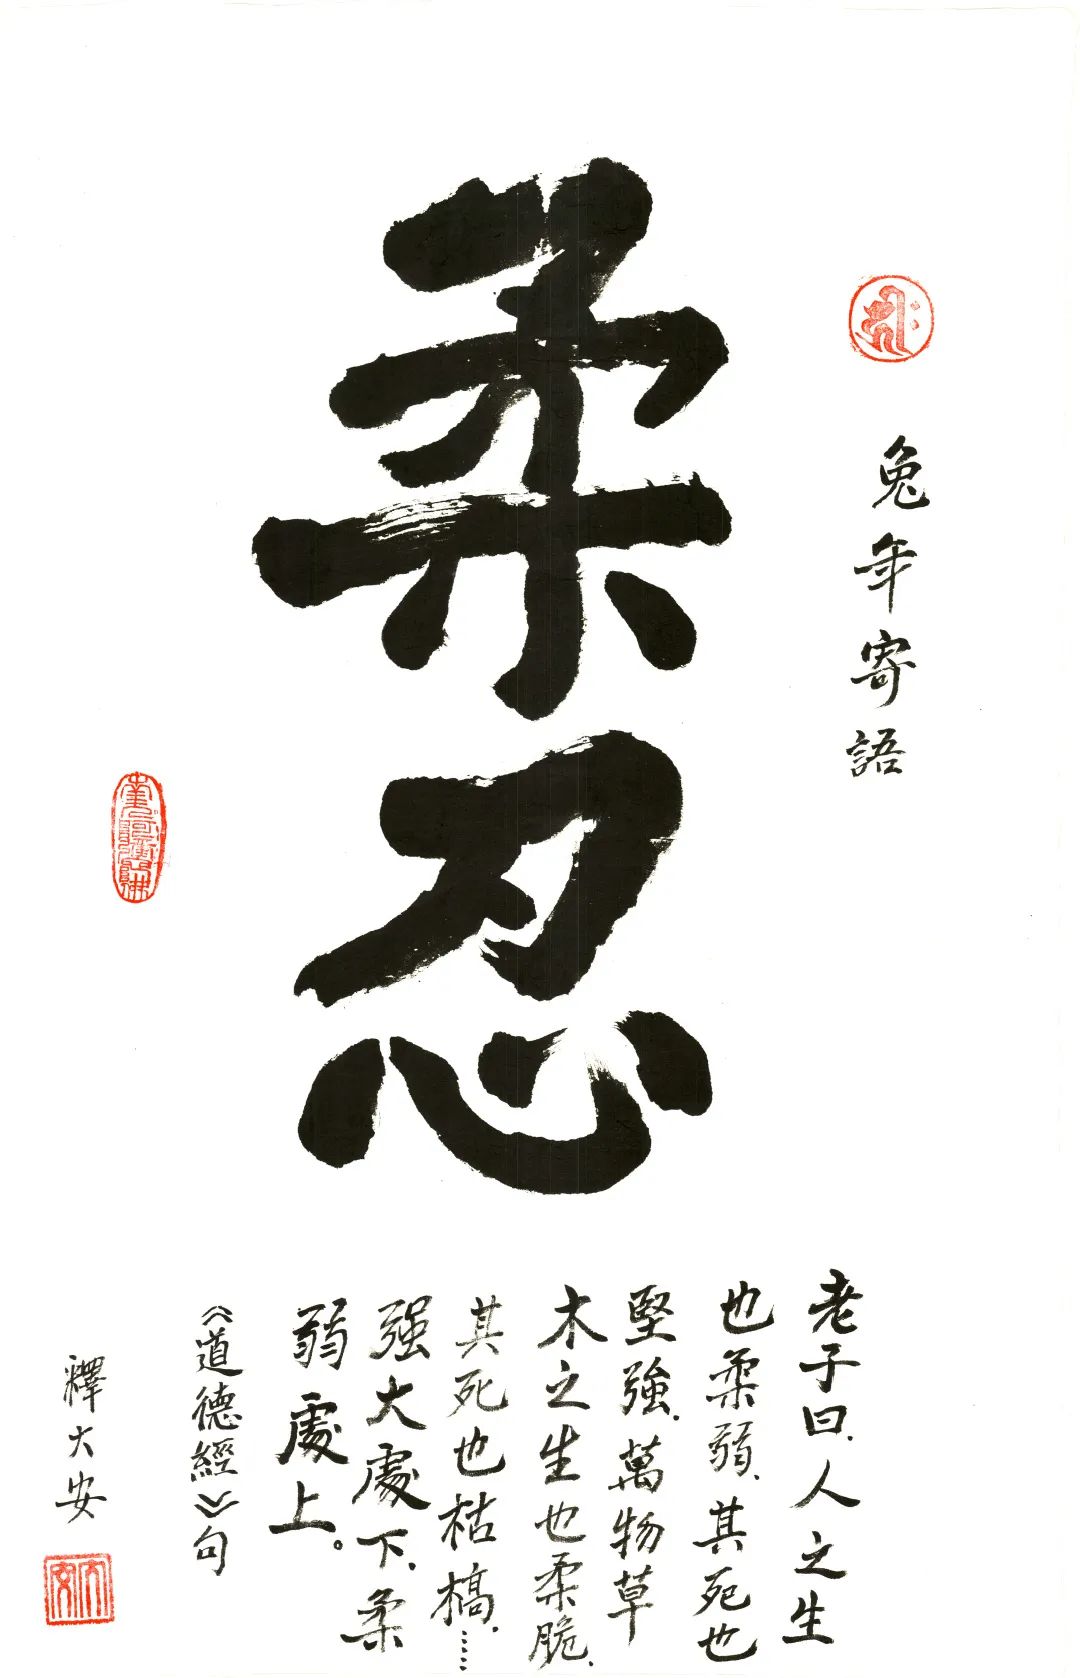 兔年寄語
柔忍
老子曰.人之生
也柔弱.其死也
堅強.萬物草
木之生也柔脆.
其死也枯槁.……
强大處下.柔
弱處上。
《道德經》句
釋大安
大安